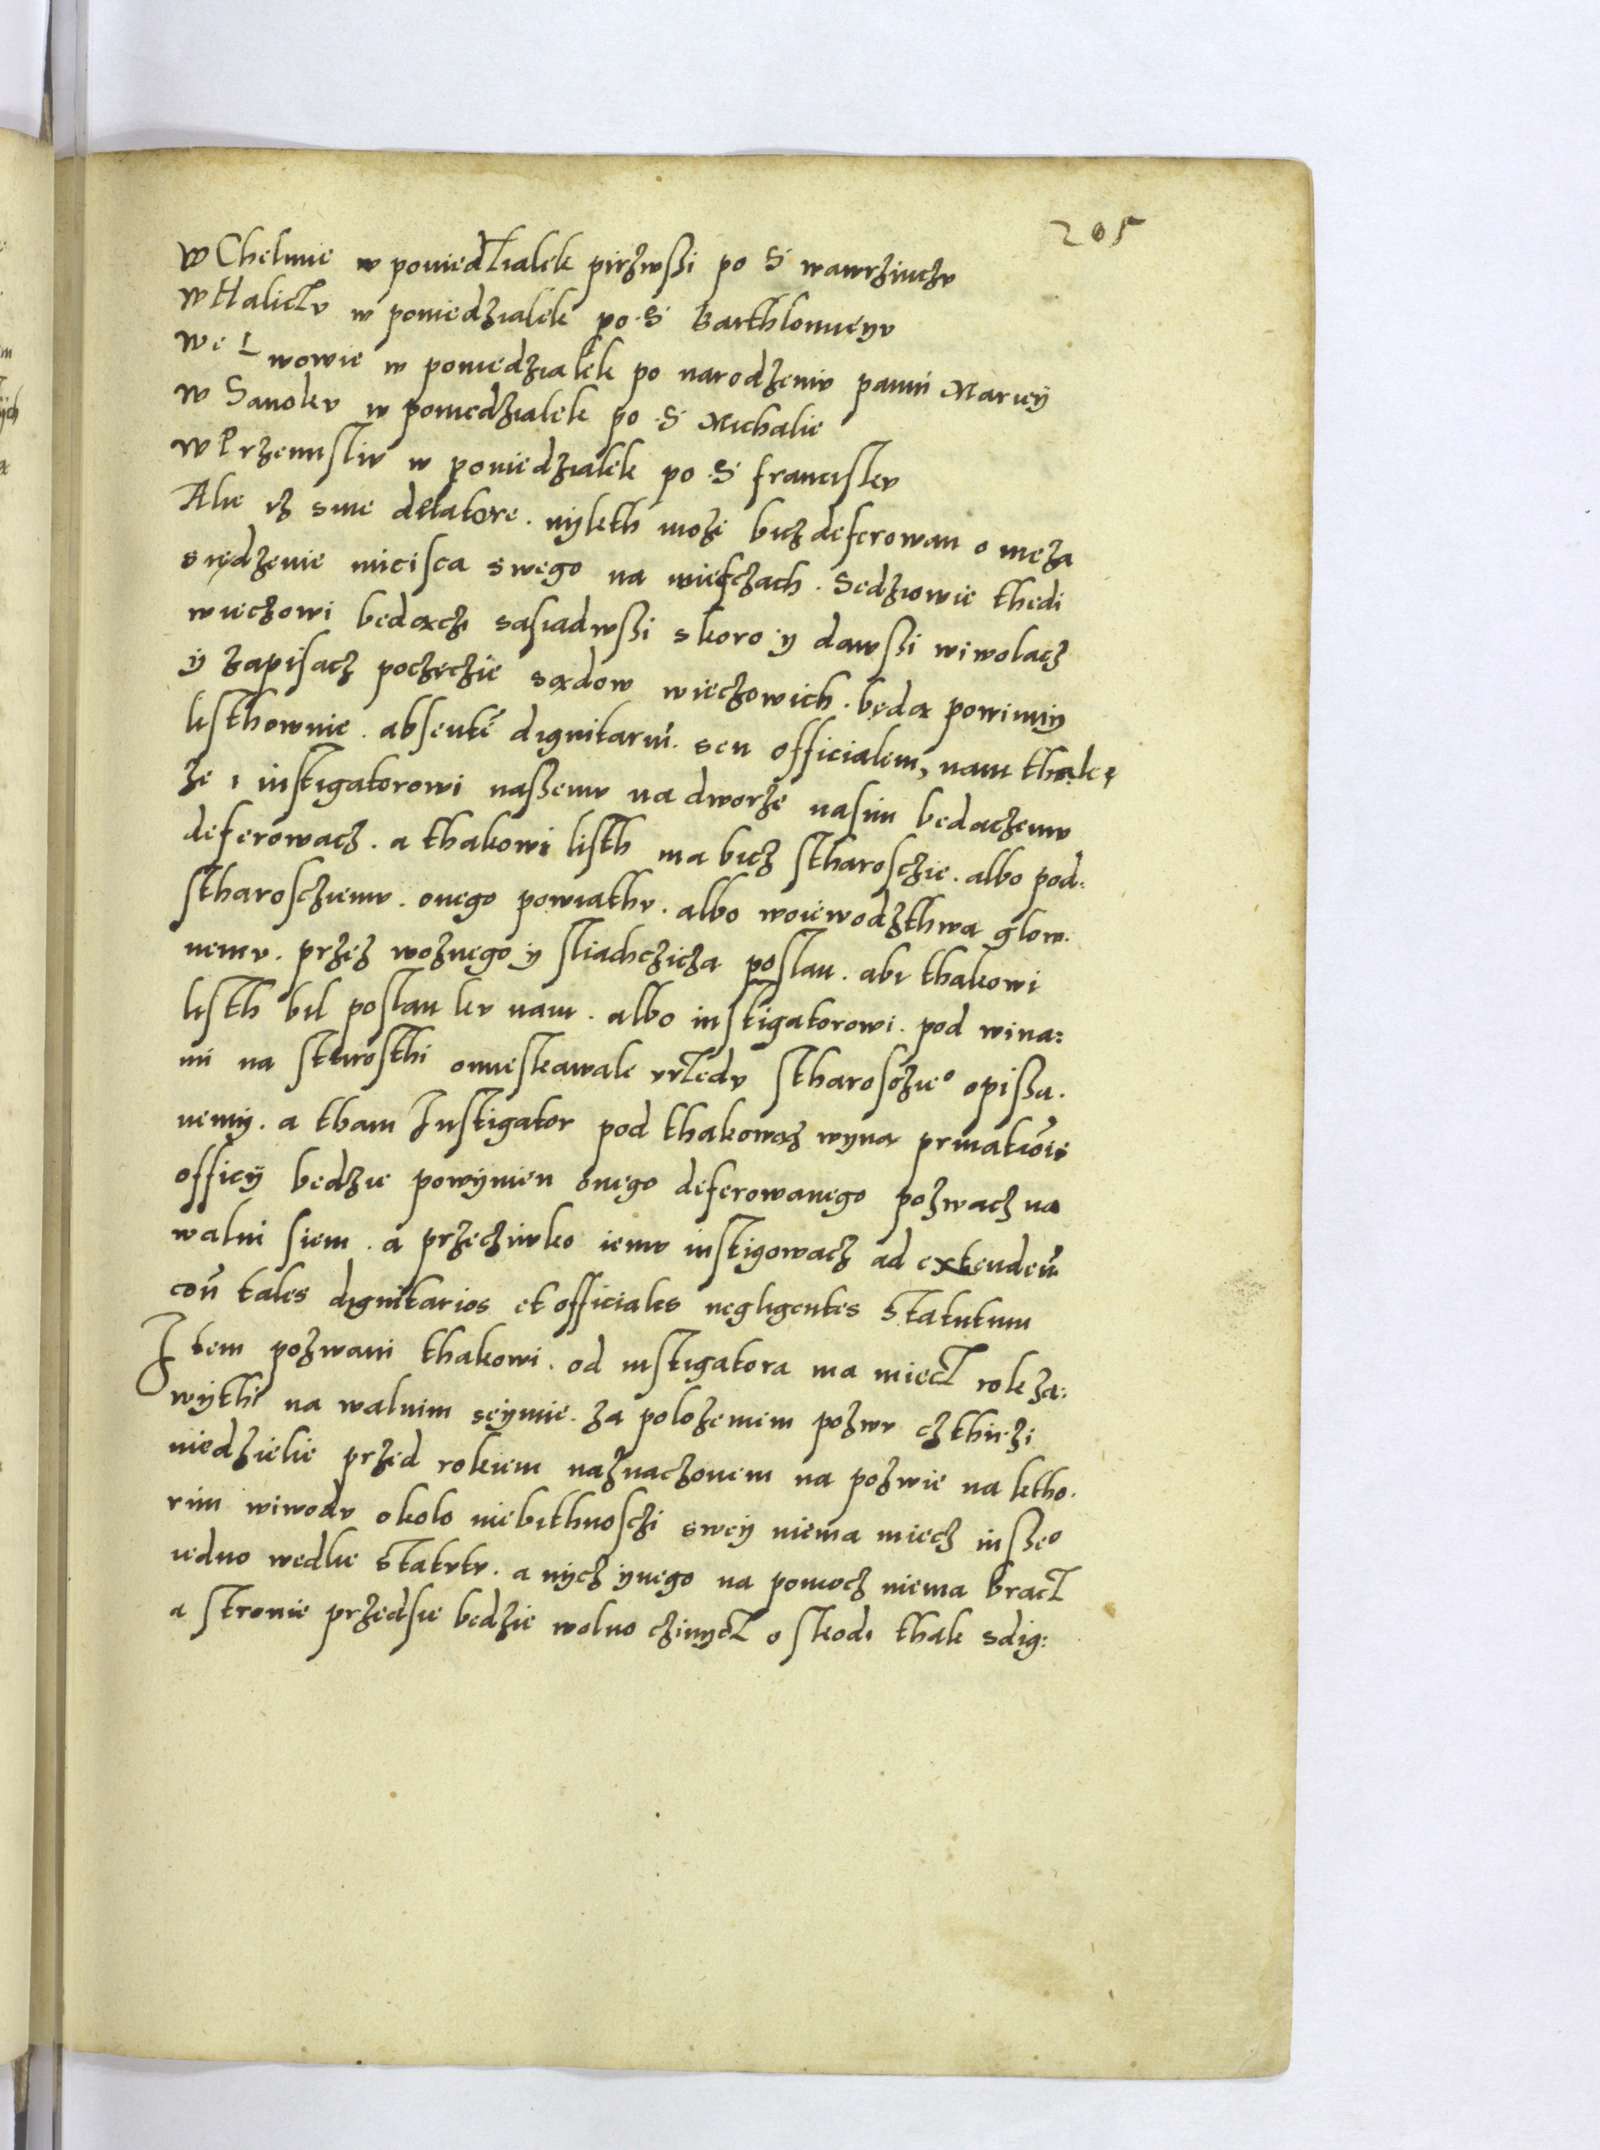 205
W Chelmie w poniedzialek pirzwssi po S wawrzinczv
W Haliczv w poniedzialek po S Barthlomieyv
We Lwowie w poniedzialek po narodzeniv panni Mariey
W Sanokv w poniedzialek po S Michalie
W Przemisliv w poniedzialek po S franciskv
Alie iz sine delatore. nykth może bicz deferowan o męża
siędzenie mieisca swego na wieczach. Sedziowie thedi
wieczowi bedacz sasiadwssi skoro y dawssi wiwolacz
y zapisacz poczęczie sądow wieczowich. będa powinny
listhownie. absentē dignitariū. seu officialem, nam thakę
że i instigatorowi nassemv na dworze nasim bedaczemv
deferowacz. a thakowi listh ma bicz stharosczie. albo pod:
stharosczemv. onego powiathv. albo woiewodzthwa glow.
nemv. przez woznego y sliachczicza poslan. abi thakowi
listh bil poslan kv nam. albo instigatorowi. pod wina:
mi na starosthi omieskawale vrzedv stharosczieo opissa.
nemy. a tham Instigator pod thakowaz wyna privatiōis
officy bedzie powynien onego deferowanego pozwacz na
walni siem. a przecziwko iemv instigowacz ad extendēū
con̄ tales dignitarios et officiales negligentes Statutum
Item pozwani thakowi. od instigatora ma miecz rok za:
wythi na walnim seymie. za polozeniem pozwv czthirzi
niedzielie przed rokiem naznaczonem na pozwie na ktho.
rim wiwodv okolo niebithnosczi swey niema miecz insseo
iedno wedlie Statvtv. a nycz ynego na pomocz niema bracz
a stronie przedsie bedzie wolno czinycz o skodi thak sdig: